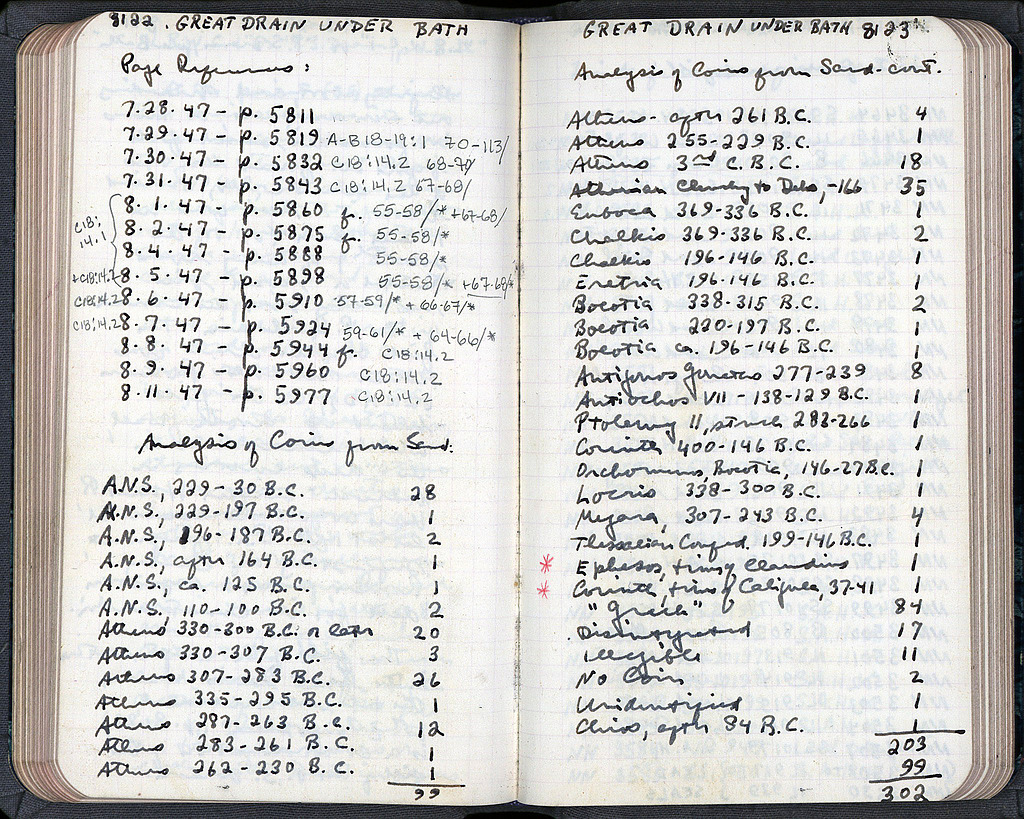 8122. GREAT DRAIN UNDER BATH
Page References:
7.28.47 - p. 5811
7.29.47 - p. 5819 A-B 18-19:1 70-113/
7.30.47 - p. 5832 C18:14.2 68-70/
7.31.47 - p. 5843 C18:14.2 67-68/
C18:14.1
8.1.47 - p. 5860 f. 55-58/* +67-68/
8.2.47 - p. 5875 f. 55-58/*
8.4.47 - p. 5888 55-58/*
+C18:14.2 8.5.47 - p. 5898 55-58/* +67-68/*
C18:14.2 8.6.47 - p. 5910 57-59/* + 66-67/*
C18:14.2 8.7.47 - p. 5924 59-61/* + 64-66/*
8.8.47 - p. 5944 f. C18:14.2
8.9.47 - p. 5960 C18:14.2
8.11.47 - p. 5977 C18:14.2
Analysis of Coins from Sand:
A.N.S., 229-30 B.C. 28
A.N.S., 229-197 B.C. 1
A.N.S., 196-187 B.C. 2
A.N.S., after 164 B.C. 1
A.N.S., ca. 125 B.C. 1
A.N.S., 110-100 B.C. 2
Athens 330-300 B.C. or later 20
Athens 330-307 B.C. 3
Athens 307-283 B.C. 26
Athens 335-295 B.C. 1
Athens 287-263 B.C. 12
Athens 283-261 B.C. 1
Athens 262-230 B.C. 1
99
GREAT DRAIN UNDER BATH 8123
Analysis of Coins from Sand-cont.
Athens - after 261 B.C. 4
Athens 255-229 B.C. 1
Athens 3rd C. B.C. 18
Athenian Cleruchy to Delos, -166 35
Euboea 369-336 B.C. 1
Chalkis 369-336 B.C. 2
Chalkis 196-146 B.C. 1
Eretria 196-146 B.C. 1
Boeotia 338-315 B.C. 2
Boeotia 220-197 B.C. 1
Boeotia ca. 196-146 B.C. 1
Antigonos Gonatas 277-239 8
Antiochos VII - 138-129 B.C. 1
Ptolemy II, struck 283-266 1
Corinth 400-146 B.C. 1
Orchomenos, Boeotia, 146-27 B.C. 1
Locris 338-300 B.C. 1
Megara, 307-243 B.C. 4
Thessalian Confed. 199-146 B.C. 1
* Ephesos, time of Claudius 1
* Corinth, time of Caligula, 37-41 1
"Greek" 84
Disintegrated 17
Illegible 11
No Coin 2
Unidentified 1
Chios, after 84 B.C. 1
203
99
302